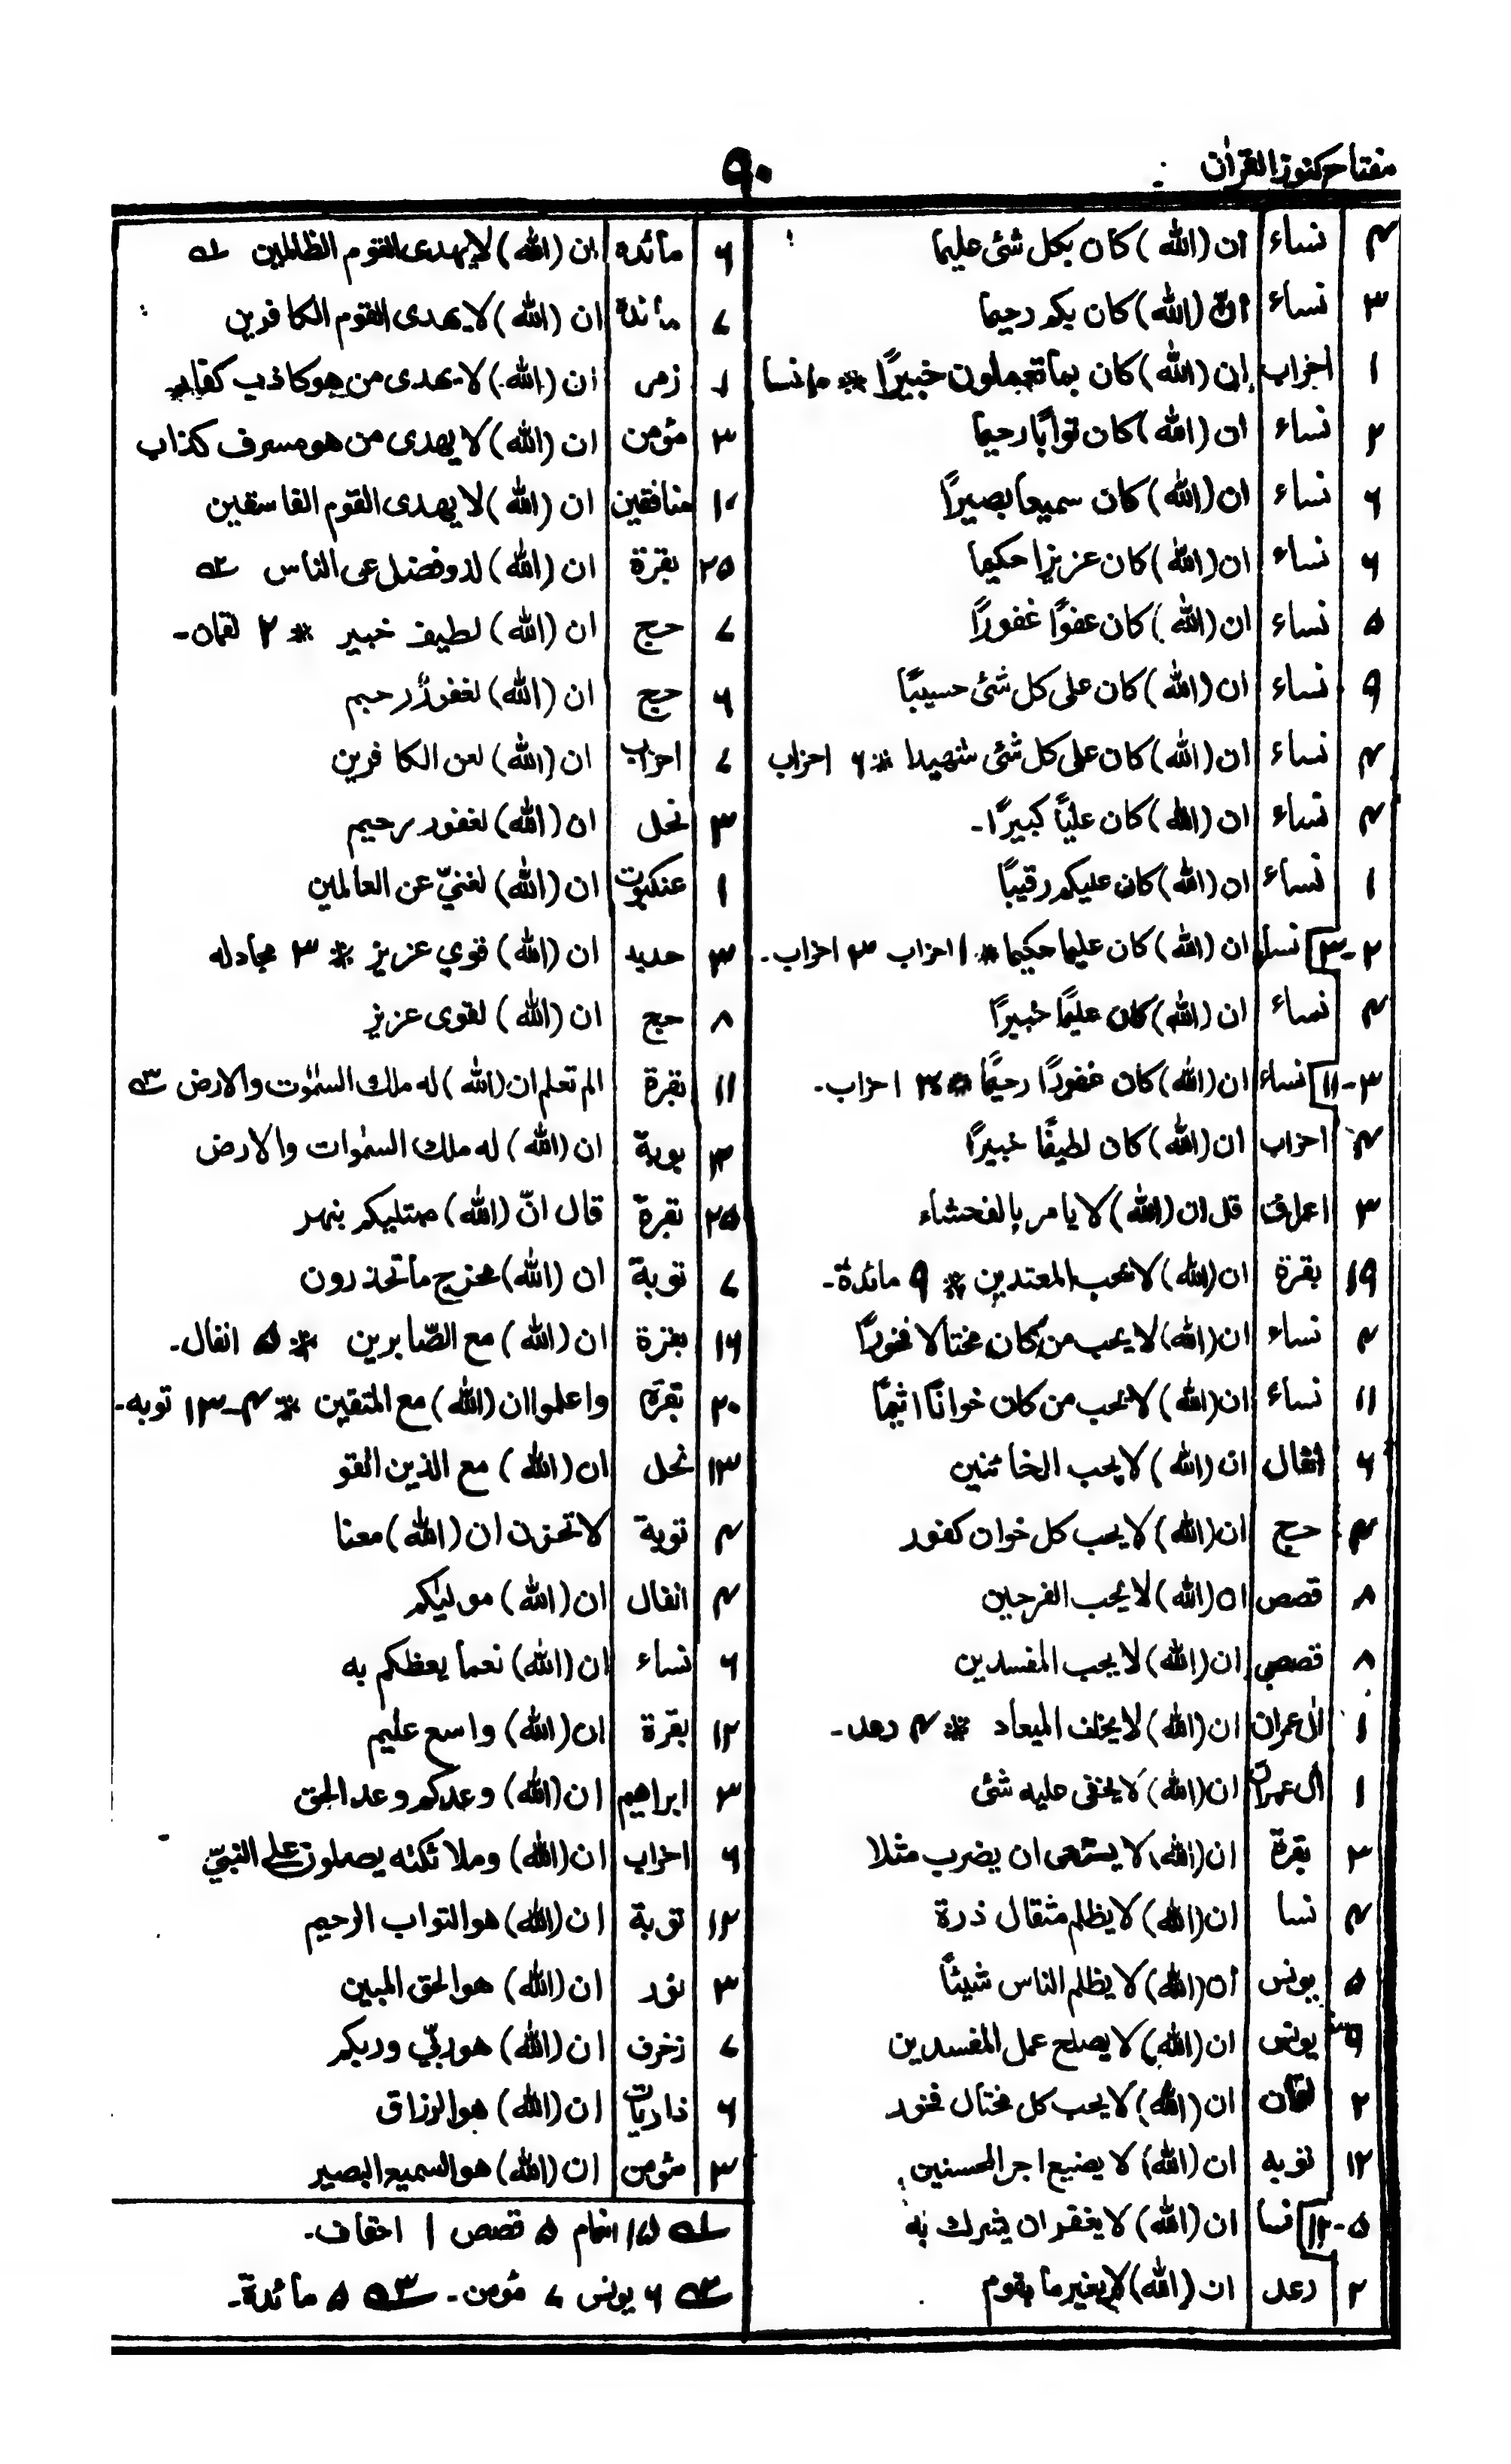 مفتاح کنوز القرآن
۹۰
۴ نساء ان (الله) کان بکل شئ علیما
۳ نساء انّ (الله) کان بکم رحیما
۱ احزاب ان (الله) کان بما تعملون خبیرًا
۲ نساء ان (الله) کان توابًا رحیما
۶ نساء ان (الله) کان سمیعا بصیرًا
۶ نساء ان (الله) کان عزیزا حکیما
۵ نساء ان (الله) کان عفوًا غفورًا
۹ نساء ان (الله) کان علی کل شئ حسیبًا
۴ نساء ان (الله) کان علی کل شئ شهیدا * ۶ احزاب
۴ نساء ان (الله) کان علیًا کبیرًا-
۱ نساء ان (الله) کان علیکم رقیبًا
۲-۳ نساء ان (الله) کان علیما حکیما * ۱ احزاب ۳ احزاب-
۴ نساء ان (الله) کان علیمًا خبیرًا
۳-۱۱ نساء ان (الله) کان غفورًا رحیمًا * ۳ احزاب-
۴ احزاب ان (الله) کان لطیفًا خبیرًا
۳ اعراف قل ان (الله) لا یامر بالفحشاء
۱۹ بقرة ان (الله) لا یحب المعتدین * ۹ مائدة-
۴ نساء ان (الله) لا یحب من کان مختالا فخورًا
۱۱ نساء ان (الله) لا یحب من کان خوانًا اثیمًا
۶ انفال ان (الله) لا یحب الخائنین
۴ حج ان (الله) لا یحب کل خوان کفور
۸ قصص ان (الله) لا یحب الفرحین
۸ قصص ان (الله) لا یحب المفسدین
۱ اٰل عمران ان (الله) لا یخلف المیعاد * ۴ رعد-
۱ اٰل عمران ان (الله) لا یخفی علیه شئ
۳ بقرة ان (الله) لا یستحی ان یضرب مثلا
۴ نسا ان (الله) لا یظلم مثقال ذرة
۵ یونس ان (الله) لا یظلم الناس شیئًا
یونس ان (الله) لا یصلح عمل المفسدین
۲ لقمان ان (الله) لا یحب کل مختال فخور
۱۲ توبه ان (الله) لا یضیع اجر المحسنین
۵-۱۲ نسا ان (الله) لا یغفر ان یشرك به
۲ رعد ان (الله) لا یغیر ما بقوم
۶ مائدة ان (الله) لا یهدی القوم الظالمین ؂۱
۷ مائدة ان (الله) لا یهدی القوم الکافرین
۱ زمر ان (الله) لا یهدی من هو کاذب کفار
۳ مؤمن ان (الله) لا یهدی من هو مسرف کذاب
۱۰ منافقین ان (الله) لا یهدی القوم الفاسقین
۲۵ بقرة ان (الله) لذو فضل علی الناس ؂۲
۷ حج ان (الله) لطیف خبیر * ۲ لقمان-
۶ حج ان (الله) لغفورٌ رحیم
۷ احزاب ان (الله) لعن الکافرین
۳ نحل ان (الله) لغفور رحیم
۱ عنکبوت ان (الله) لغنیّ عن العالمین
۳ حدید ان (الله) قوي عزیز * ۳ مجادله
۸ حج ان (الله) لقوی عزیز
۱۱ بقرة الم تعلم ان (الله) له ملك السمٰوت والارض ؂۳
۳ توبة ان (الله) له ملك السمٰوات والارض
۲۵ بقرة قال انّ (الله) مبتلیکم بنهر
۷ توبة ان (الله) مخرج ما تحذرون
۱۶ بقرة ان (الله) مع الصّابرین * ۵ انفال-
۲۰ بقرة واعلموا ان (الله) مع المتقین * ۴-۱۳ توبه-
۱۳ نحل ان (الله) مع الذین اتقو
۴ توبة لا تحزن ان (الله) معنا
۴ انفال ان (الله) مولیٰکم
۶ نساء ان (الله) نعما یعظکم به
۱۲ بقرة ان (الله) واسع علیم
۳ ابراهیم ان (الله) وعدکم وعد الحق
۶ احزاب ان (الله) وملائکته یصلون علی النبيّ
۱۲ توبة ان (الله) هو التواب الرحیم
۳ نور ان (الله) هو الحق المبین
۷ زخرف ان (الله) هو ربّي وربکم
۶ ذاریات ان (الله) هو الرزاق
۳ مئومن ان (الله) هو السمیع البصیر
؂۱ ۱۵ انعام ۵ قصص ۱ احقاف-
؂۲ ۶ یونس ۷ مئومن- ؂۳ ۵ مائدة-